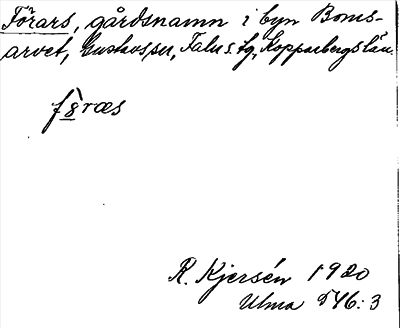 Förars, gårdsnamn i byn Boms-
arvet, Gustafs sn, Falu s. fg, Kopparbergs län
f8̀ræs
R. Kjersén 1920
Ulma 546:3